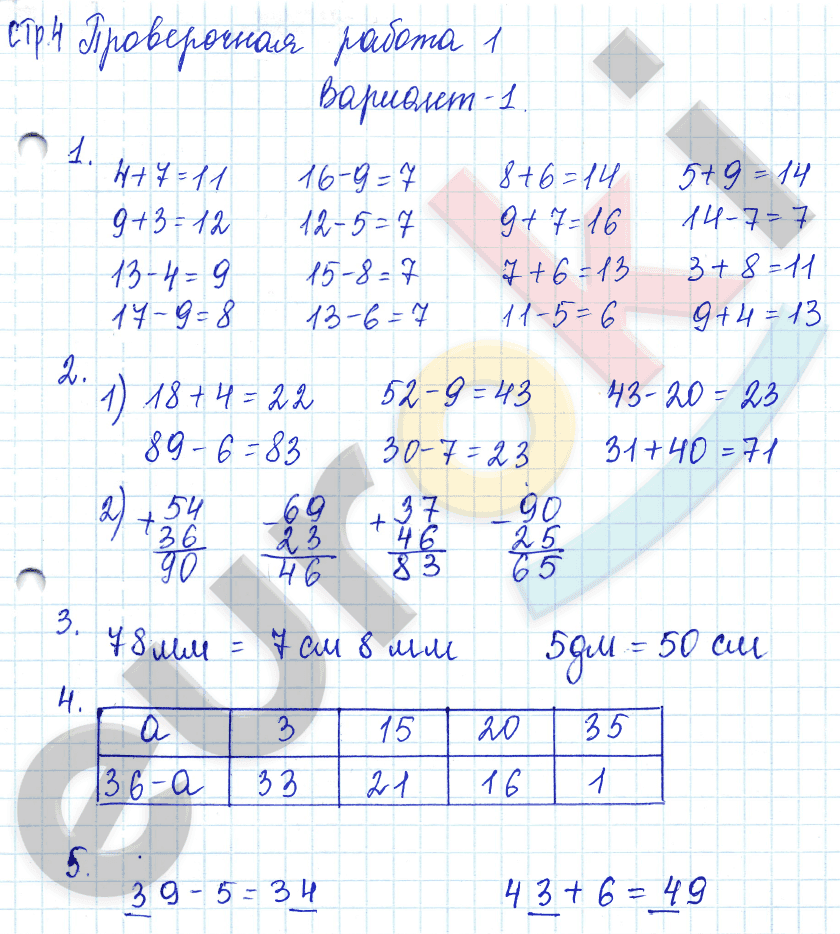 стр.4 Проверочная работа 1
Вариант-1.
1.
4+7=11 16-9=7 8+6=14 5+9=14
9+3=12 12-5=7 9+7=16 14-7=7
13-4=9 15-8=7 7+6=13 3+8=11
17-9=8 13-6=7 11-5=6 9+4=13
2.
1) 18+4=22 52-9=43 43-20=23
89-6=83 30-7=23 31+40=71
2) +54 -69 +37 -90
36 23 46 25
90 46 83 65
3. 78мм = 7 см 8 мм 5дм = 50 см
4.
a 3 15 20 35
36-a 33 21 16 1
5. 39-5=34 43+6=49
euroki